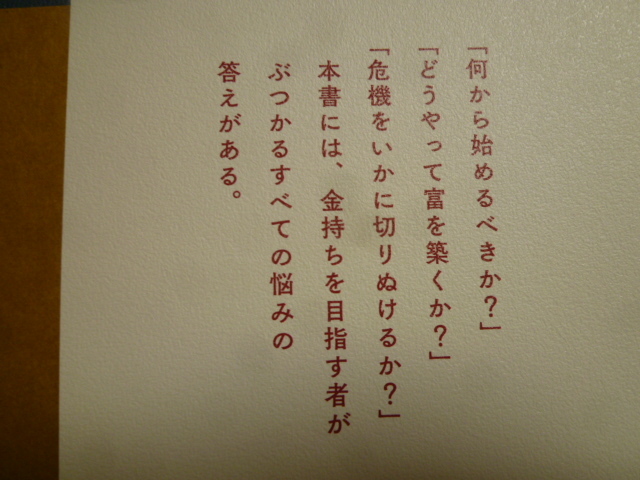 「何から始めるべきか？」
「どうやって富を築くか？」
「危機をいかに切りぬけるか？」
本書には、金持ちを目指す者が
ぶつかるすべての悩みの
答えがある。